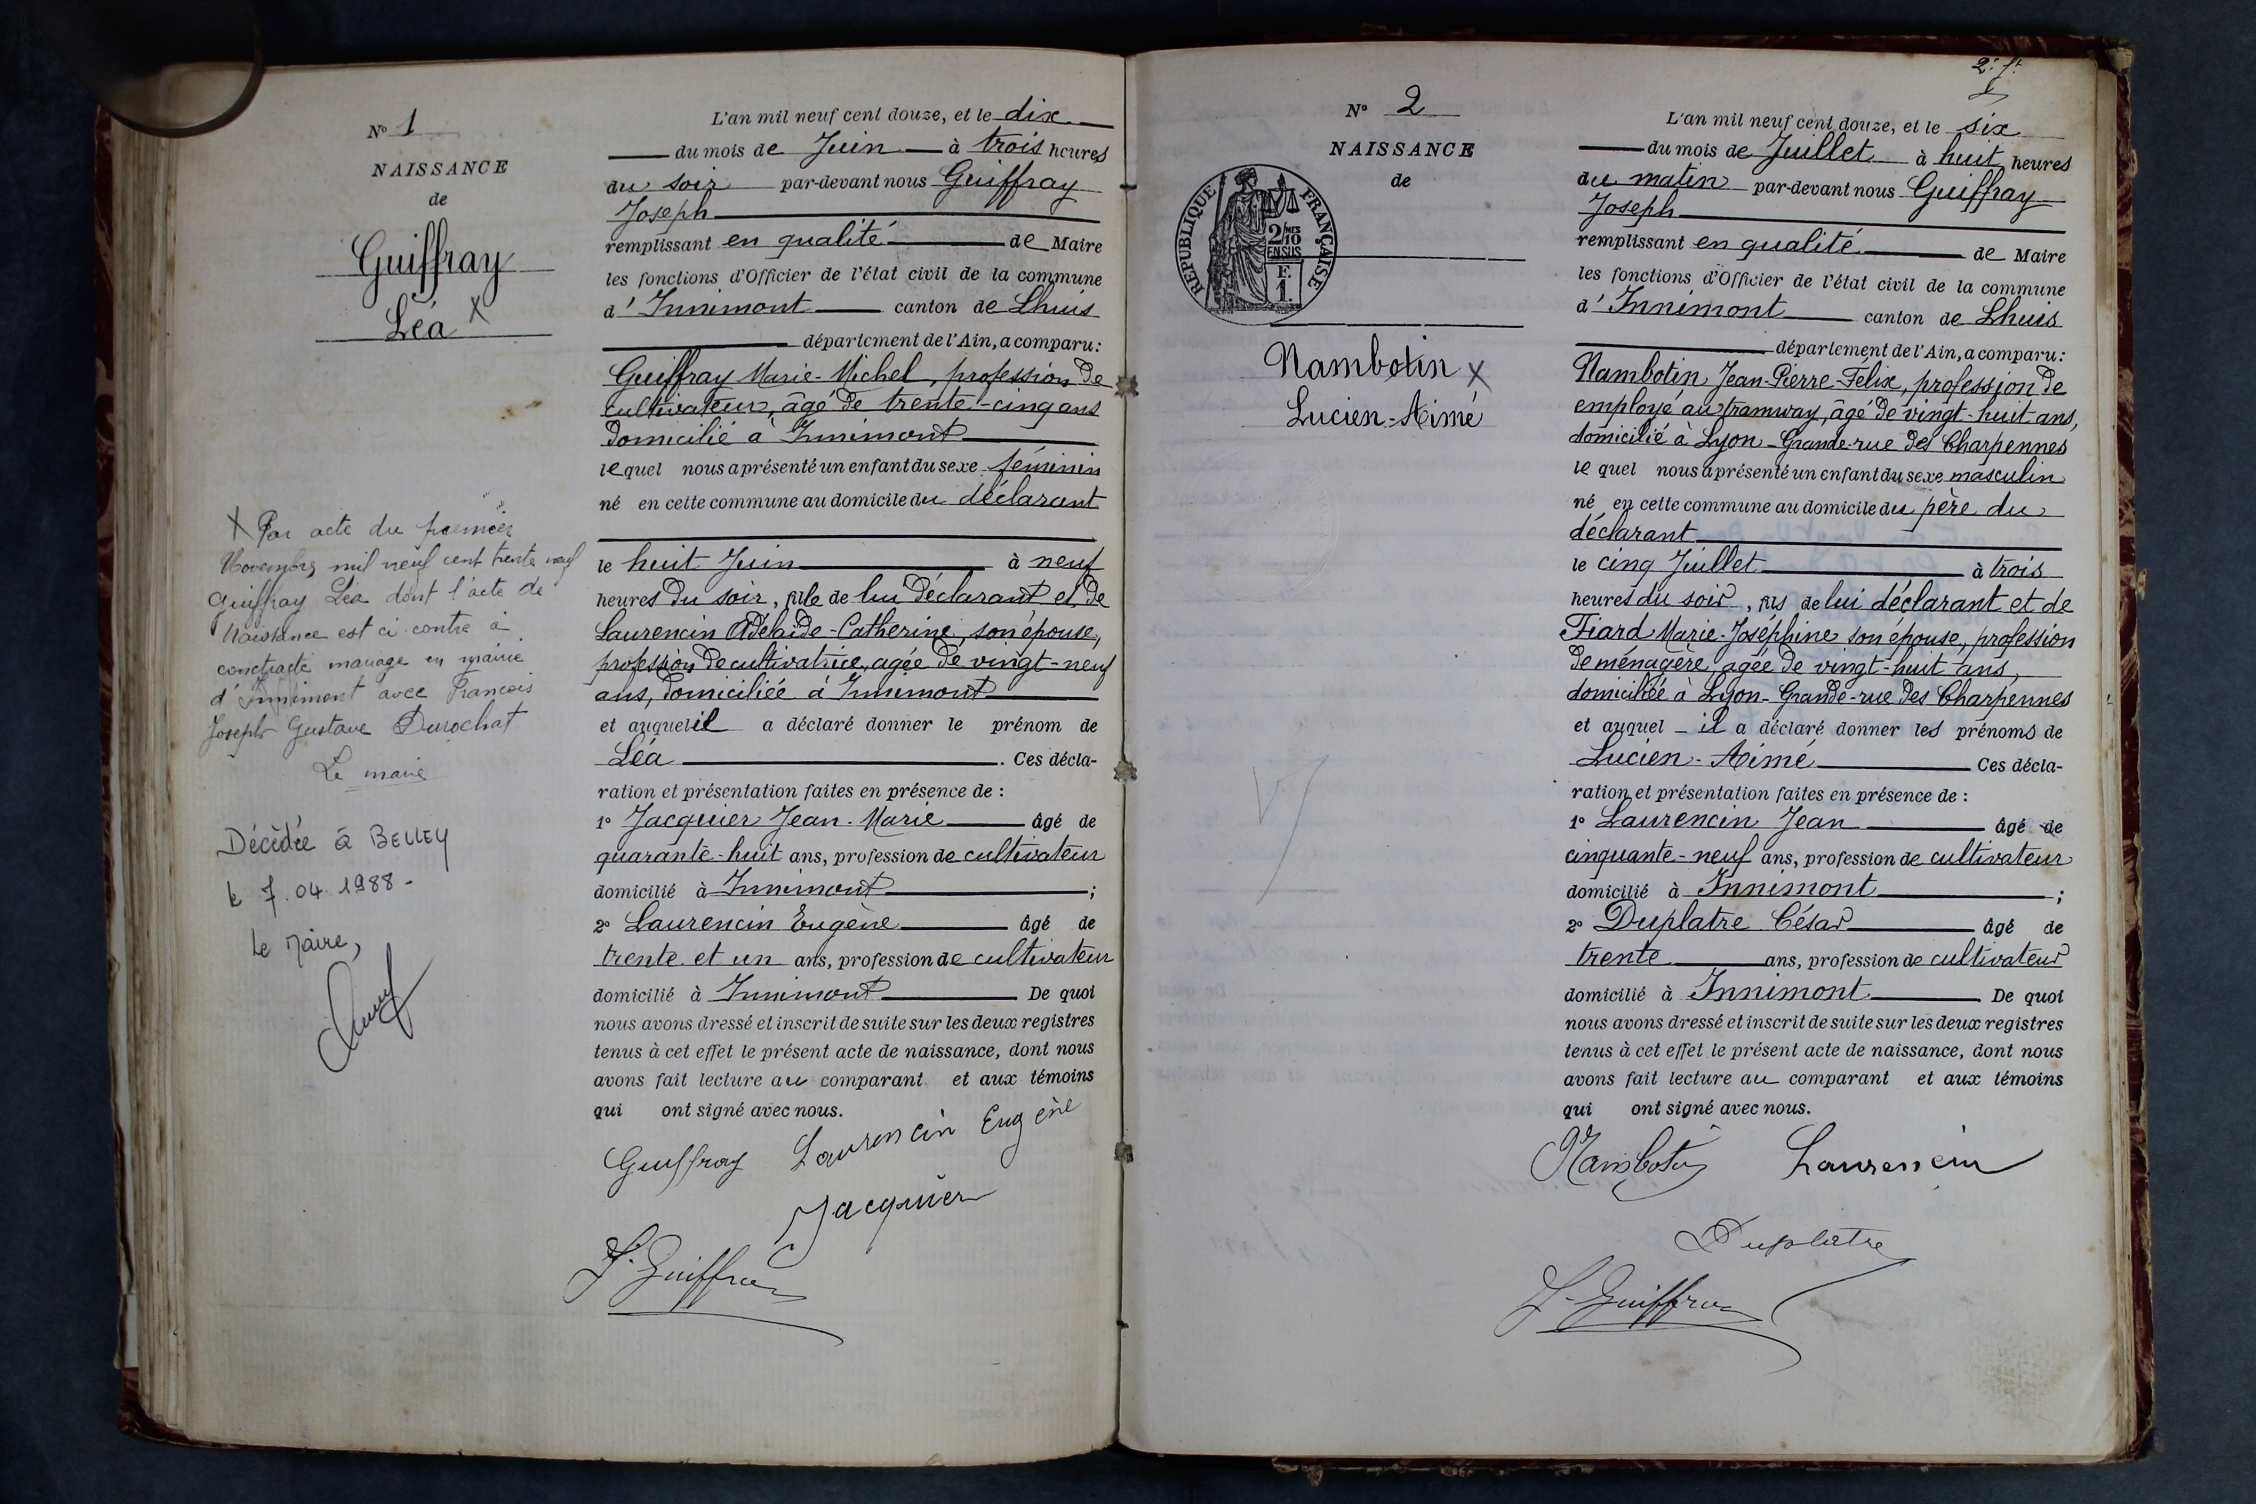 N° 1
NAISSANCE
de
Guiffray
Léa X
X Par acte du premier
Novembre mil neuf cent trente neuf
Guiffray Léa dont l'acte de
Naissance est ci-contre à
contracté mariage en mairie
d'Innimont avec François
Joseph Gustave Durochat
Le maire
Décédée à BELLEY
le 7.04.1988-
Le Maire,
L'an mil neuf cent douze, et le dix
du mois de Juin à trois heures
du soir par-devant nous Guiffray
Joseph
remplissant en qualité de Maire
les fonctions d'Officier de l'état civil de la commune
d'Innimont canton de Lhuis
département de l'Ain, a comparu:
Guiffray Marie-Michel, profession de
cultivateur, âgé de trente-cinq ans
domicilié à Innimont
lequel nous a présenté un enfant du sexe féminin
né en cette commune au domicile du déclarant
le huit Juin à neuf
heures du soir, fille de lui déclarant et de
Laurencin Adélaïde-Catherine, son épouse,
profession de cultivatrice, agée de vingt-neuf
ans, domiciliée à Innimont
et auquel il a déclaré donner le prénom de
Léa. Ces décla-
ration et présentation faites en présence de :
1° Jacquier Jean-Marie âgé de
quarante-huit ans, profession de cultivateur
domicilié à Innimont ;
2° Laurencin Eugène âgé de
trente et un ans, profession de cultivateur
domicilié à Innimont De quoi
nous avons dressé et inscrit de suite sur les deux registres
tenus à cet effet le présent acte de naissance, dont nous
avons fait lecture au comparant et aux témoins
qui ont signé avec nous.
Guiffray Laurencin Eugène
Jacquier
J. Guiffray
2e ft
N° 2
NAISSANCE
de
REPUBLIQUE FRANÇAISE
2/10MES
EN SUS
F.
1.
Nambotin X
Lucien-Aimé
L'an mil neuf cent douze, et le six
du mois de Juillet à huit heures
du matin par-devant nous Guiffray
Joseph
remplissant en qualité de Maire
les fonctions d'Officier de l'état civil de la commune
d'Innimont canton de Lhuis
département de l'Ain, a comparu:
Nambotin Jean-Pierre-Félix, profession de
employé au tramway, âgé de vingt-huit ans,
domicilié à Lyon-Grande-rue des Charpennes
lequel nous a présenté un enfant du sexe masculin
né en cette commune au domicile du père du
déclarant
le cinq Juillet à trois
heures du soir, fils de lui déclarant et de
Fiard Marie-Joséphine son épouse, profession
de ménagère, agée de vingt-huit ans,
domiciliée à Lyon-Grande-rue des Charpennes
et auquel il a déclaré donner les prénoms de
Lucien-Aimé Ces décla-
ration et présentation faites en présence de :
1° Laurencin Jean âgé de
cinquante-neuf ans, profession de cultivateur
domicilié à Innimont ;
2° Duplatre César âgé de
trente ans, profession de cultivateur
domicilié à Innimont De quoi
nous avons dressé et inscrit de suite sur les deux registres
tenus à cet effet le présent acte de naissance, dont nous
avons fait lecture au comparant et aux témoins
qui ont signé avec nous.
Nambotin Laurencin
Duplatre
J. Guiffray